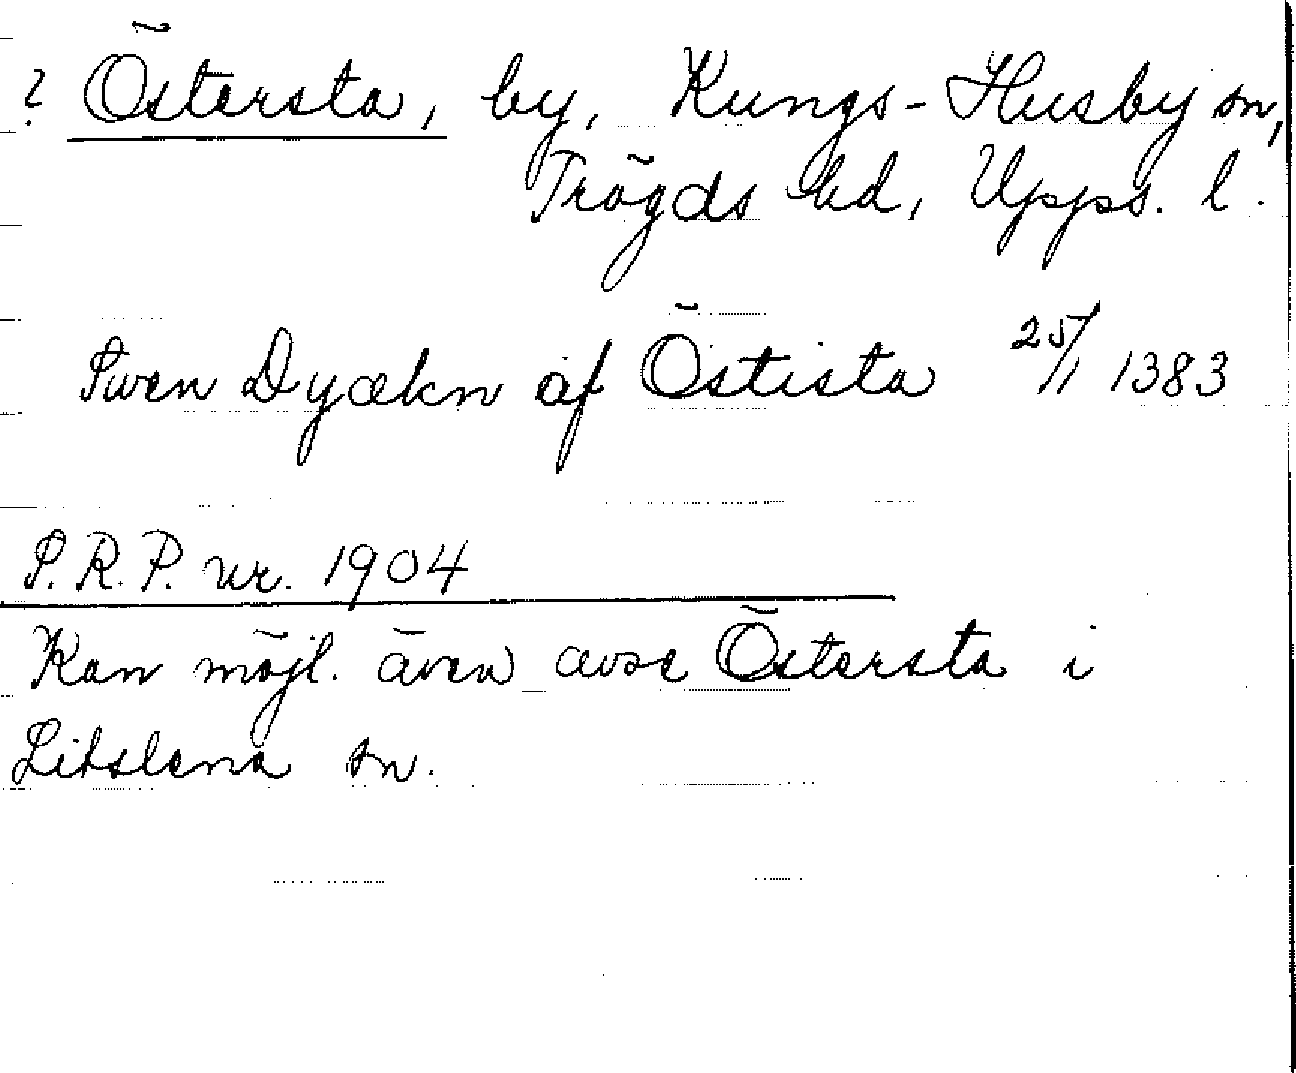 ? Östersta, by, Kungs-Husby sn,
Trögds hd, Upps. l.
Swen Dyækn af Östista 25/1 1383
S.R.P. nr. 1904
Kan möjl. även avse Östersta i
Litslena sn.